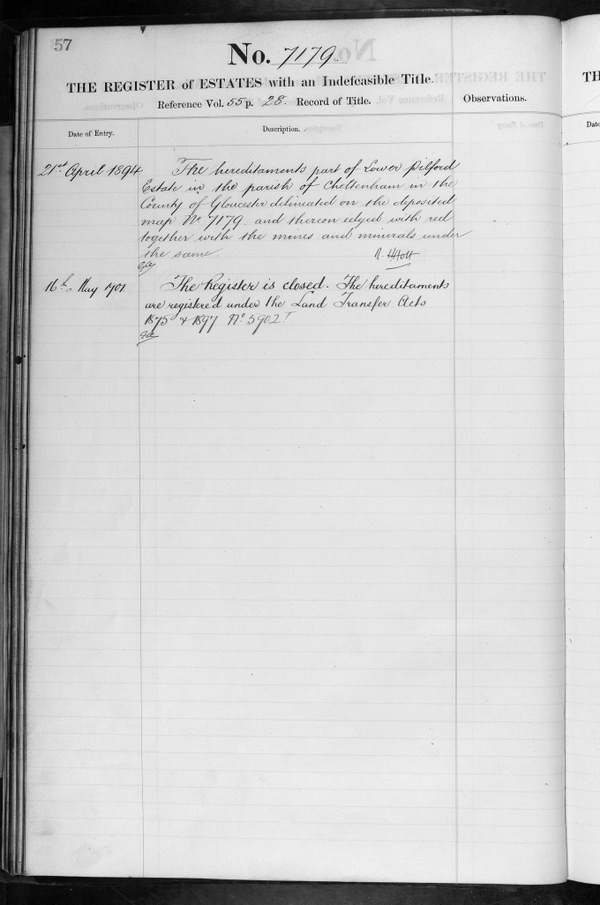 57
No. 7179
THE REGISTER of ESTATES with an Indefeasible Title.
Reference Vol. 55 p. 28. Record of Title.
Observations.
Date of Entry.
Description.
21st April 1894
The hereditaments part of Lower Pilford
Estate in the parish of Cheltenham in the
County of Gloucester delineated on the deposited
map No 7179 and thereon edged with red
together with the mines and minerals under
the same.
16th May 1901
The Register is closed. The hereditaments
are registered under the Land Transfer Acts
1875 & 1897 No 5902
TH